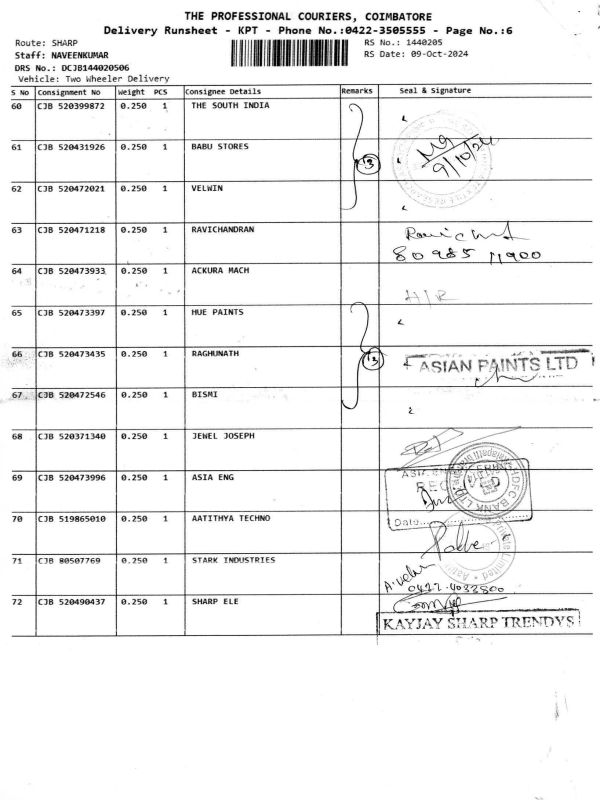 THE PROFESSIONAL COURIERS, COIMBATORE
Delivery Runsheet - KPT - Phone No.:0422-3505555 - Page No.:6
Route: SHARP RS No.: 1440205
Staff: NAVEENKUMAR RS Date: 09-Oct-2024
DRS No.: DCJB144020506
Vehicle: Two Wheeler Delivery
S No Consignment No Weight PCS Consignee Details Remarks Seal & Signature
60 CJB 520399872 0.250 1 THE SOUTH INDIA
61 CJB 520431926 0.250 1 BABU STORES 13 9/10/24
62 CJB 520472021 0.250 1 VELWIN
63 CJB 520471218 0.250 1 RAVICHANDRAN
80985 11900
64 CJB 520473933 0.250 1 ACKURA MACH H/R
65 CJB 520473397 0.250 1 HUE PAINTS
66 CJB 520473435 0.250 1 RAGHUNATH 13 ASIAN PAINTS LTD
67 CJB 520472546 0.250 1 BISMI
68 CJB 520371340 0.250 1 JEWEL JOSEPH
69 CJB 520473996 0.250 1 ASIA ENG
HDFC BANK LTD
70 CJB 519865010 0.250 1 AATITHYA TECHNO Date
71 CJB 80507769 0.250 1 STARK INDUSTRIES
0422-4033800
72 CJB 520490437 0.250 1 SHARP ELE
KAYJAY SHARP TRENDYS